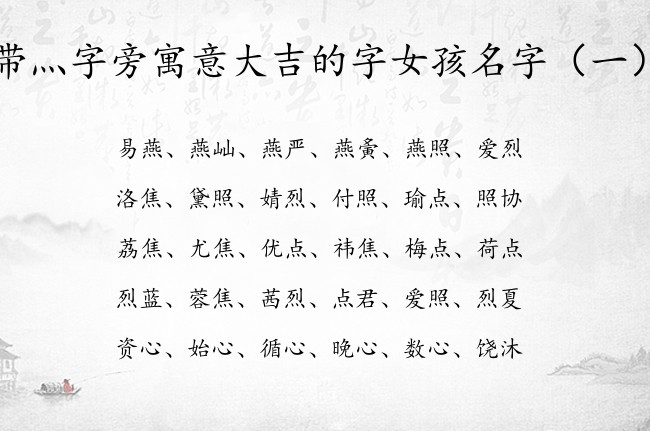 带灬字旁寓意大吉的字女孩名字（一）
易燕、燕屾、燕严、燕夤、燕照、爱烈
洛焦、黛照、婧烈、付照、瑜点、照协
荔焦、尤焦、优点、祎焦、梅点、荷点
烈蓝、蓉焦、茜烈、点君、爱照、烈夏
资心、始心、循心、晚心、数心、饶沐